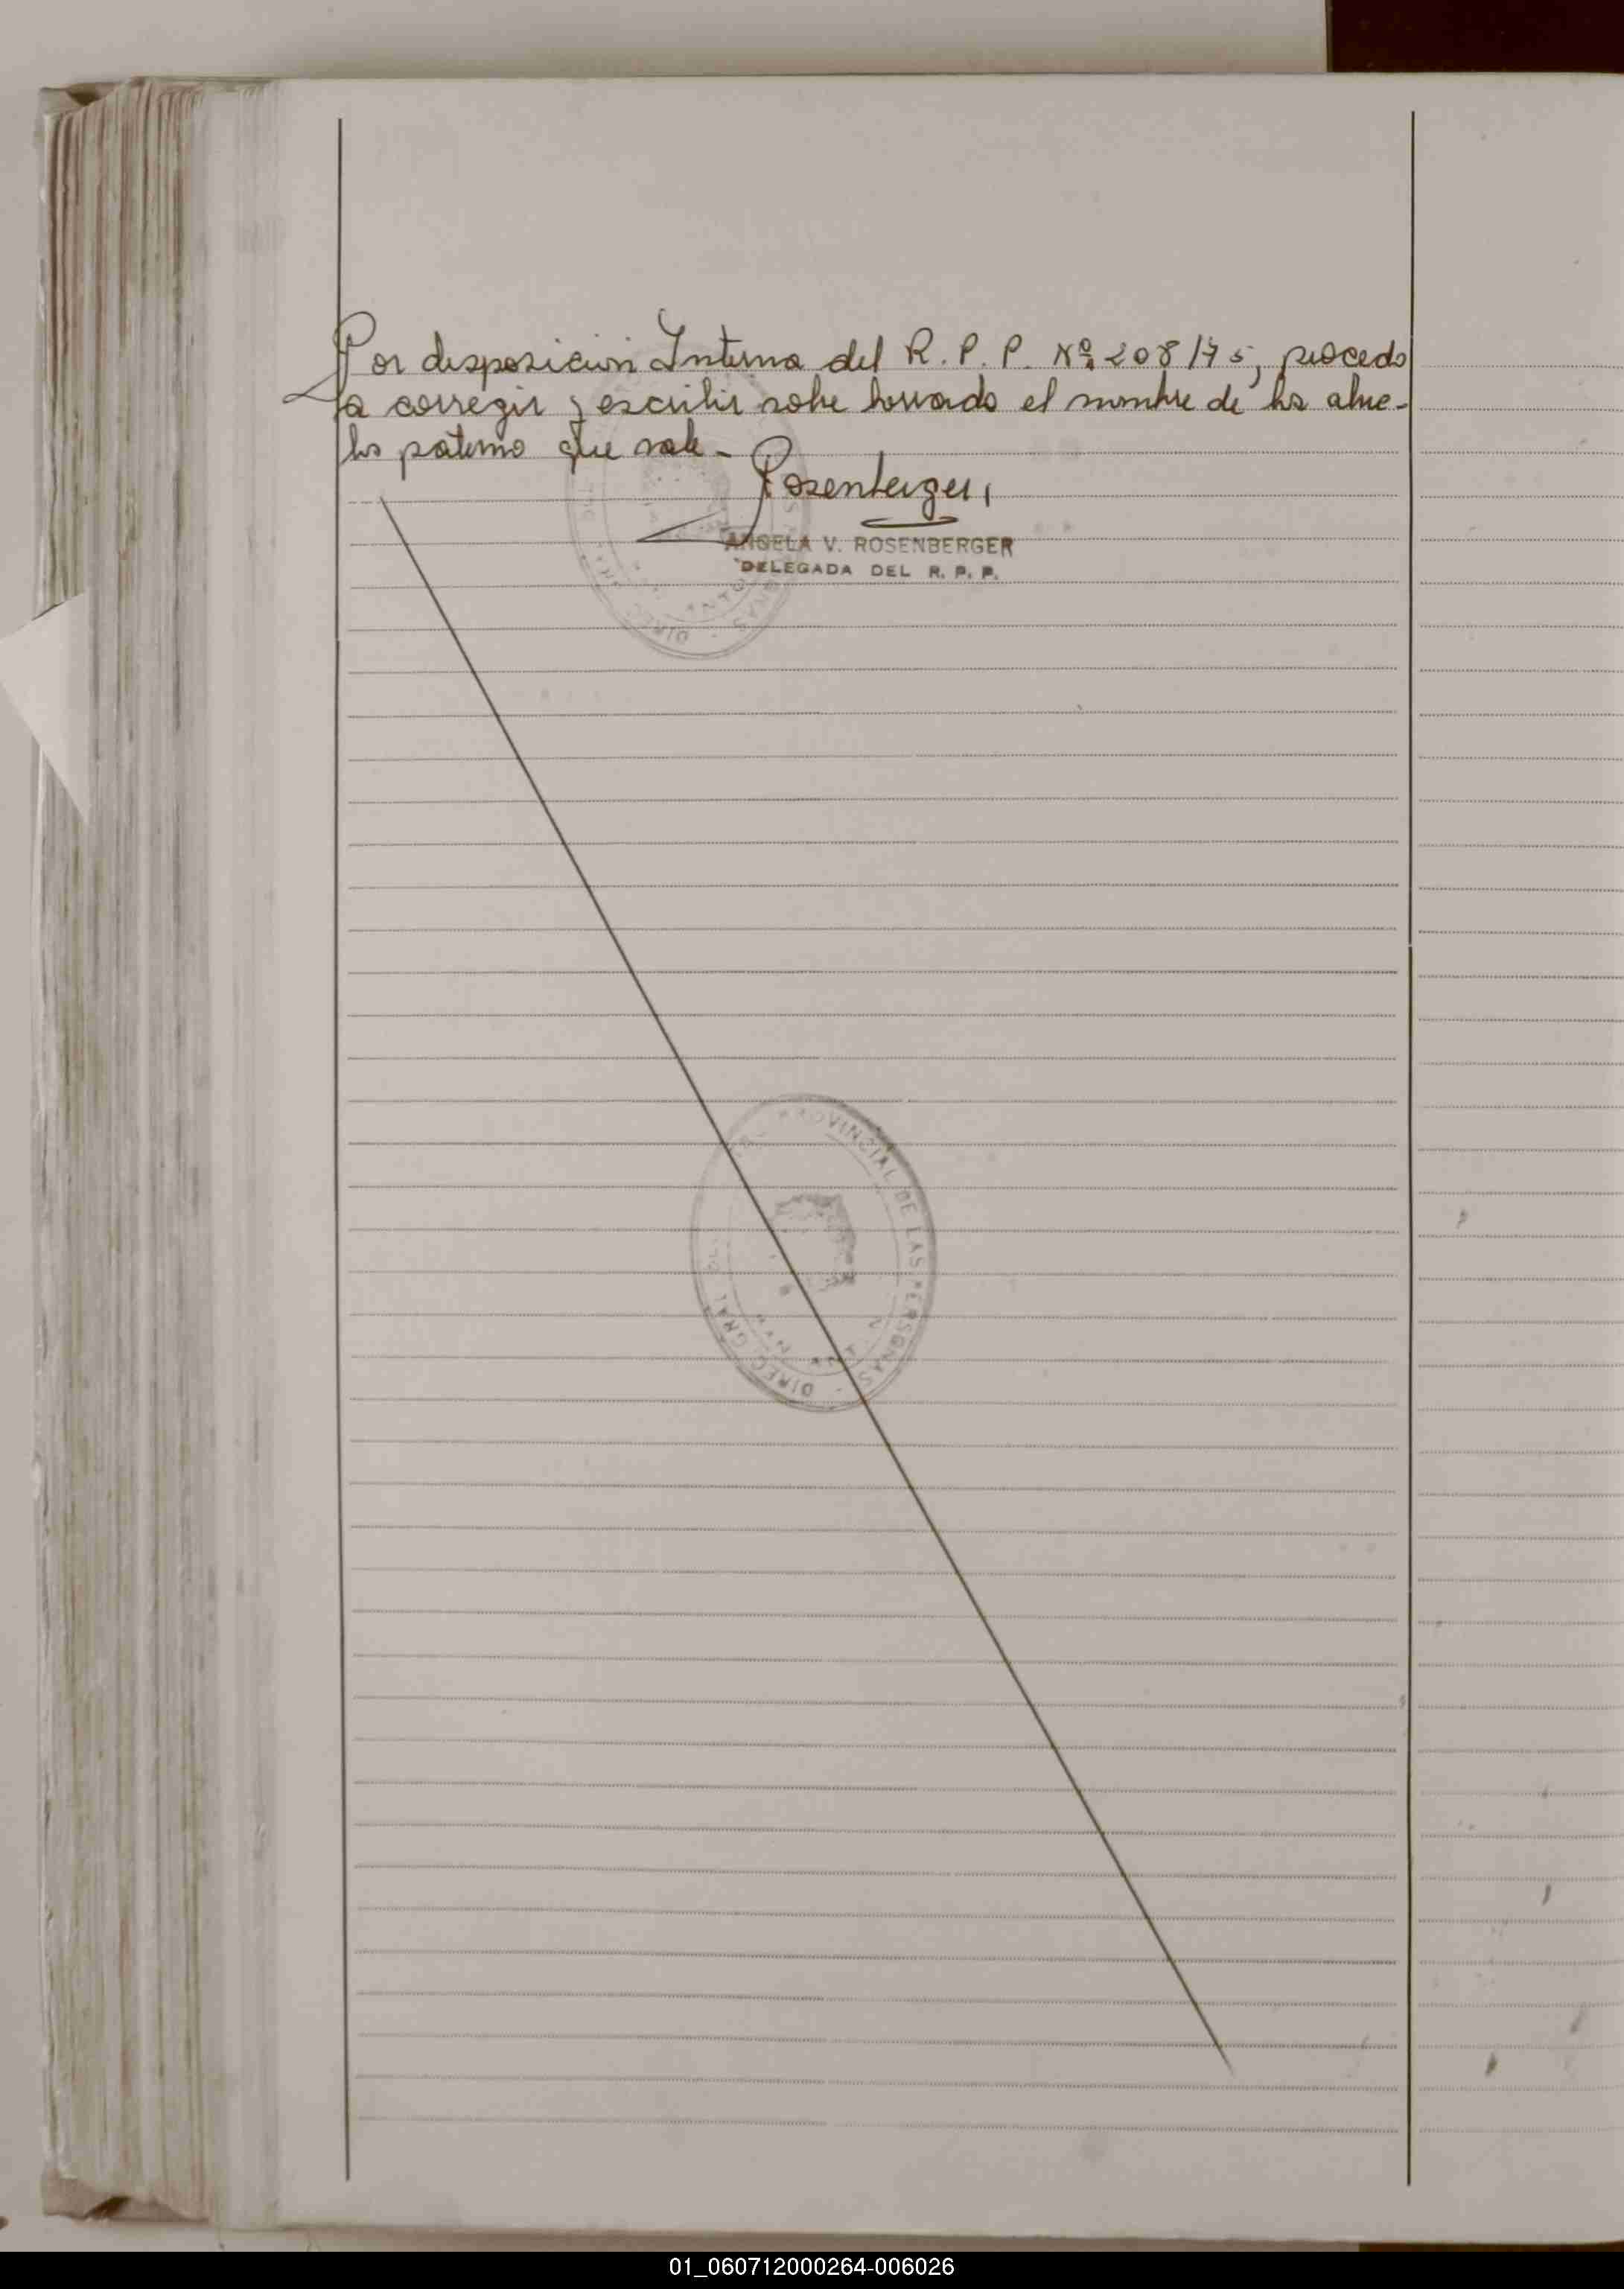 Por disposicion Interna del R.P.P. Nº 208/75, procedo
a corregir y escribir sobre borrado el nombre de los abue-
los paterno que vale.-
Rosenberger
ANGELA V. ROSENBERGER
DELEGADA DEL R. P. P.
DIREC
PROVINCIAL DE LAS PERSONAS - DIREC. GRAL
01_060712000264-006026